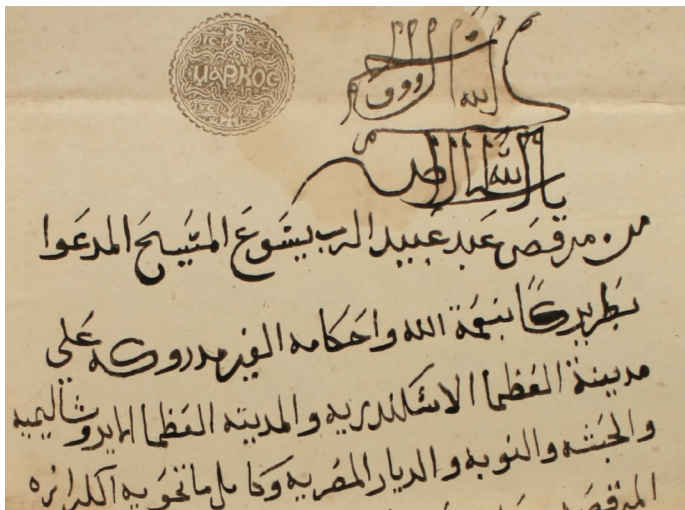 ⲘⲀⲢⲔⲞⲤ
الله الرووف
بالله الخلاص
من مرقص عبد عبيد الرب يسوع المسيح المدعوا
بطريركًا بنعمة الله واحكامه الغير مدروكه على
مدينة العظما الاسكندريه والمدينه العظما الايروشاليميه
والحبشه والنوبه والديار المصريه وكامل ما تحويه الكرازه
المرقصيه